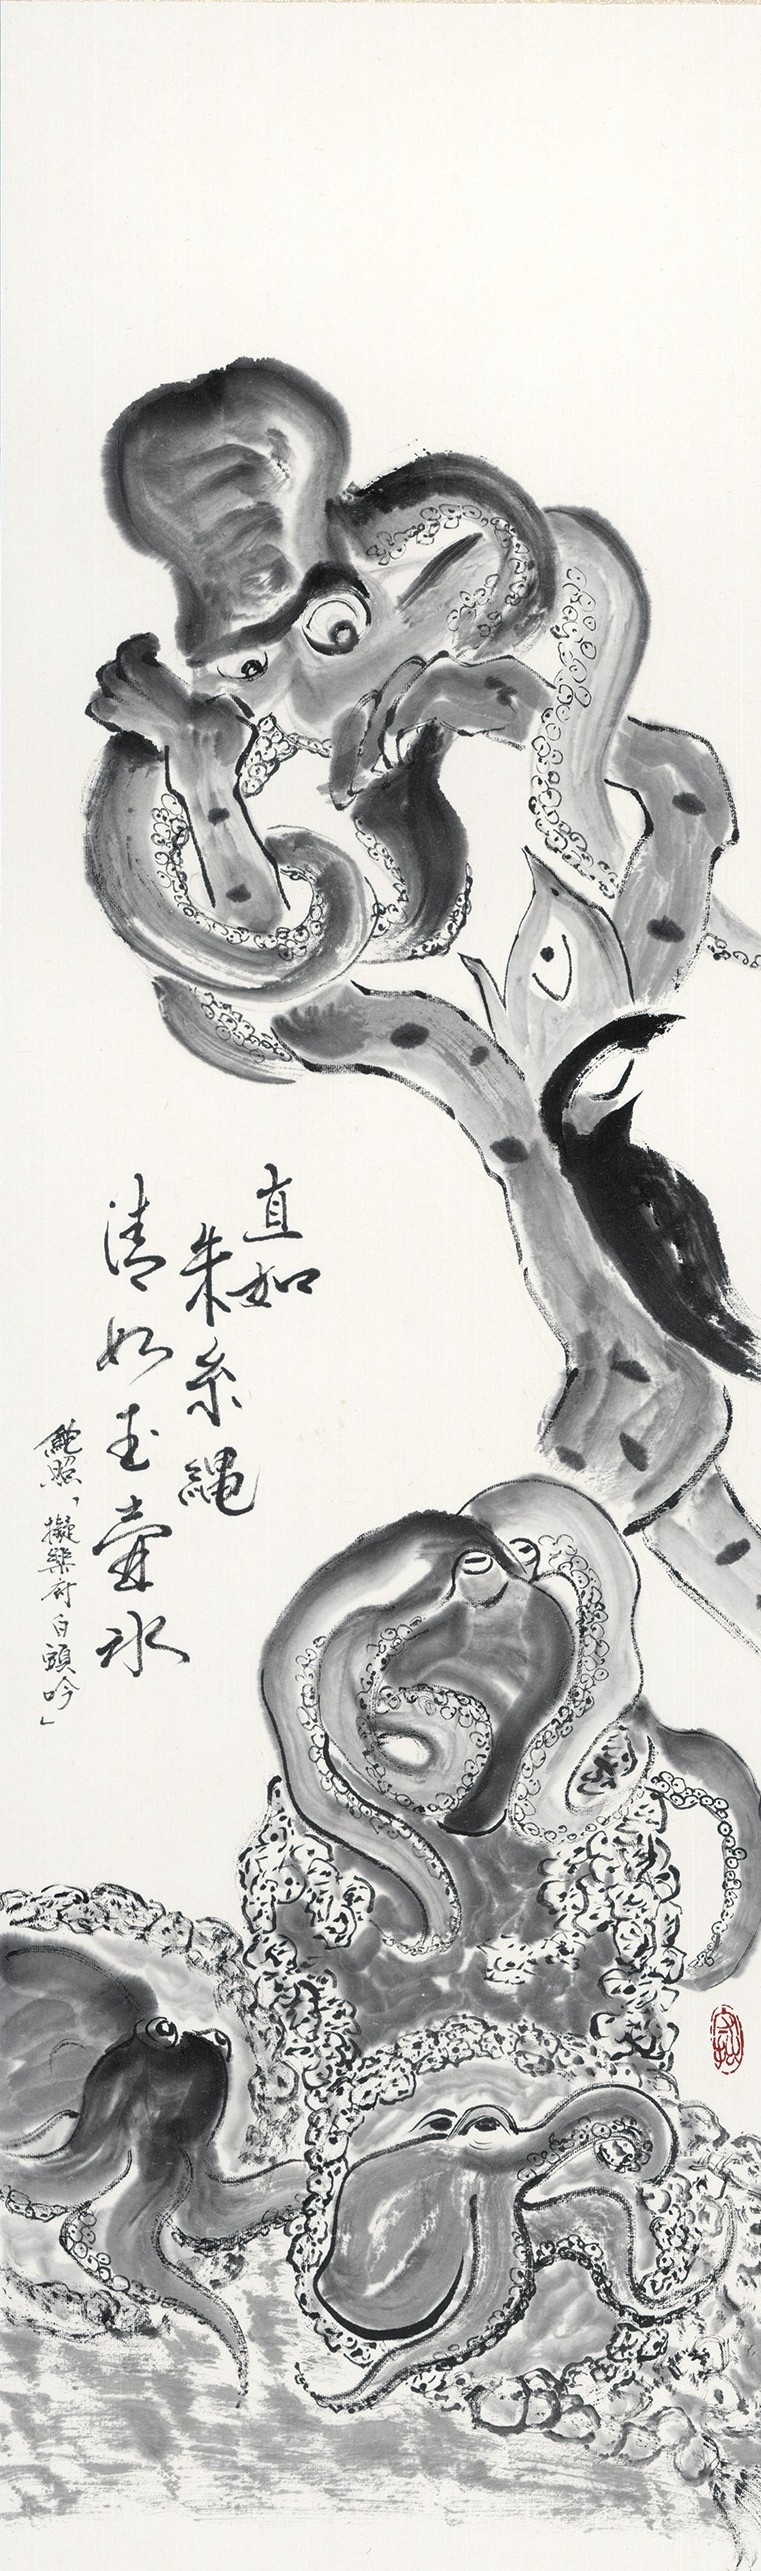 直如
朱糸繩
清如玉壷氷
鮑照「擬樂府白頭吟」